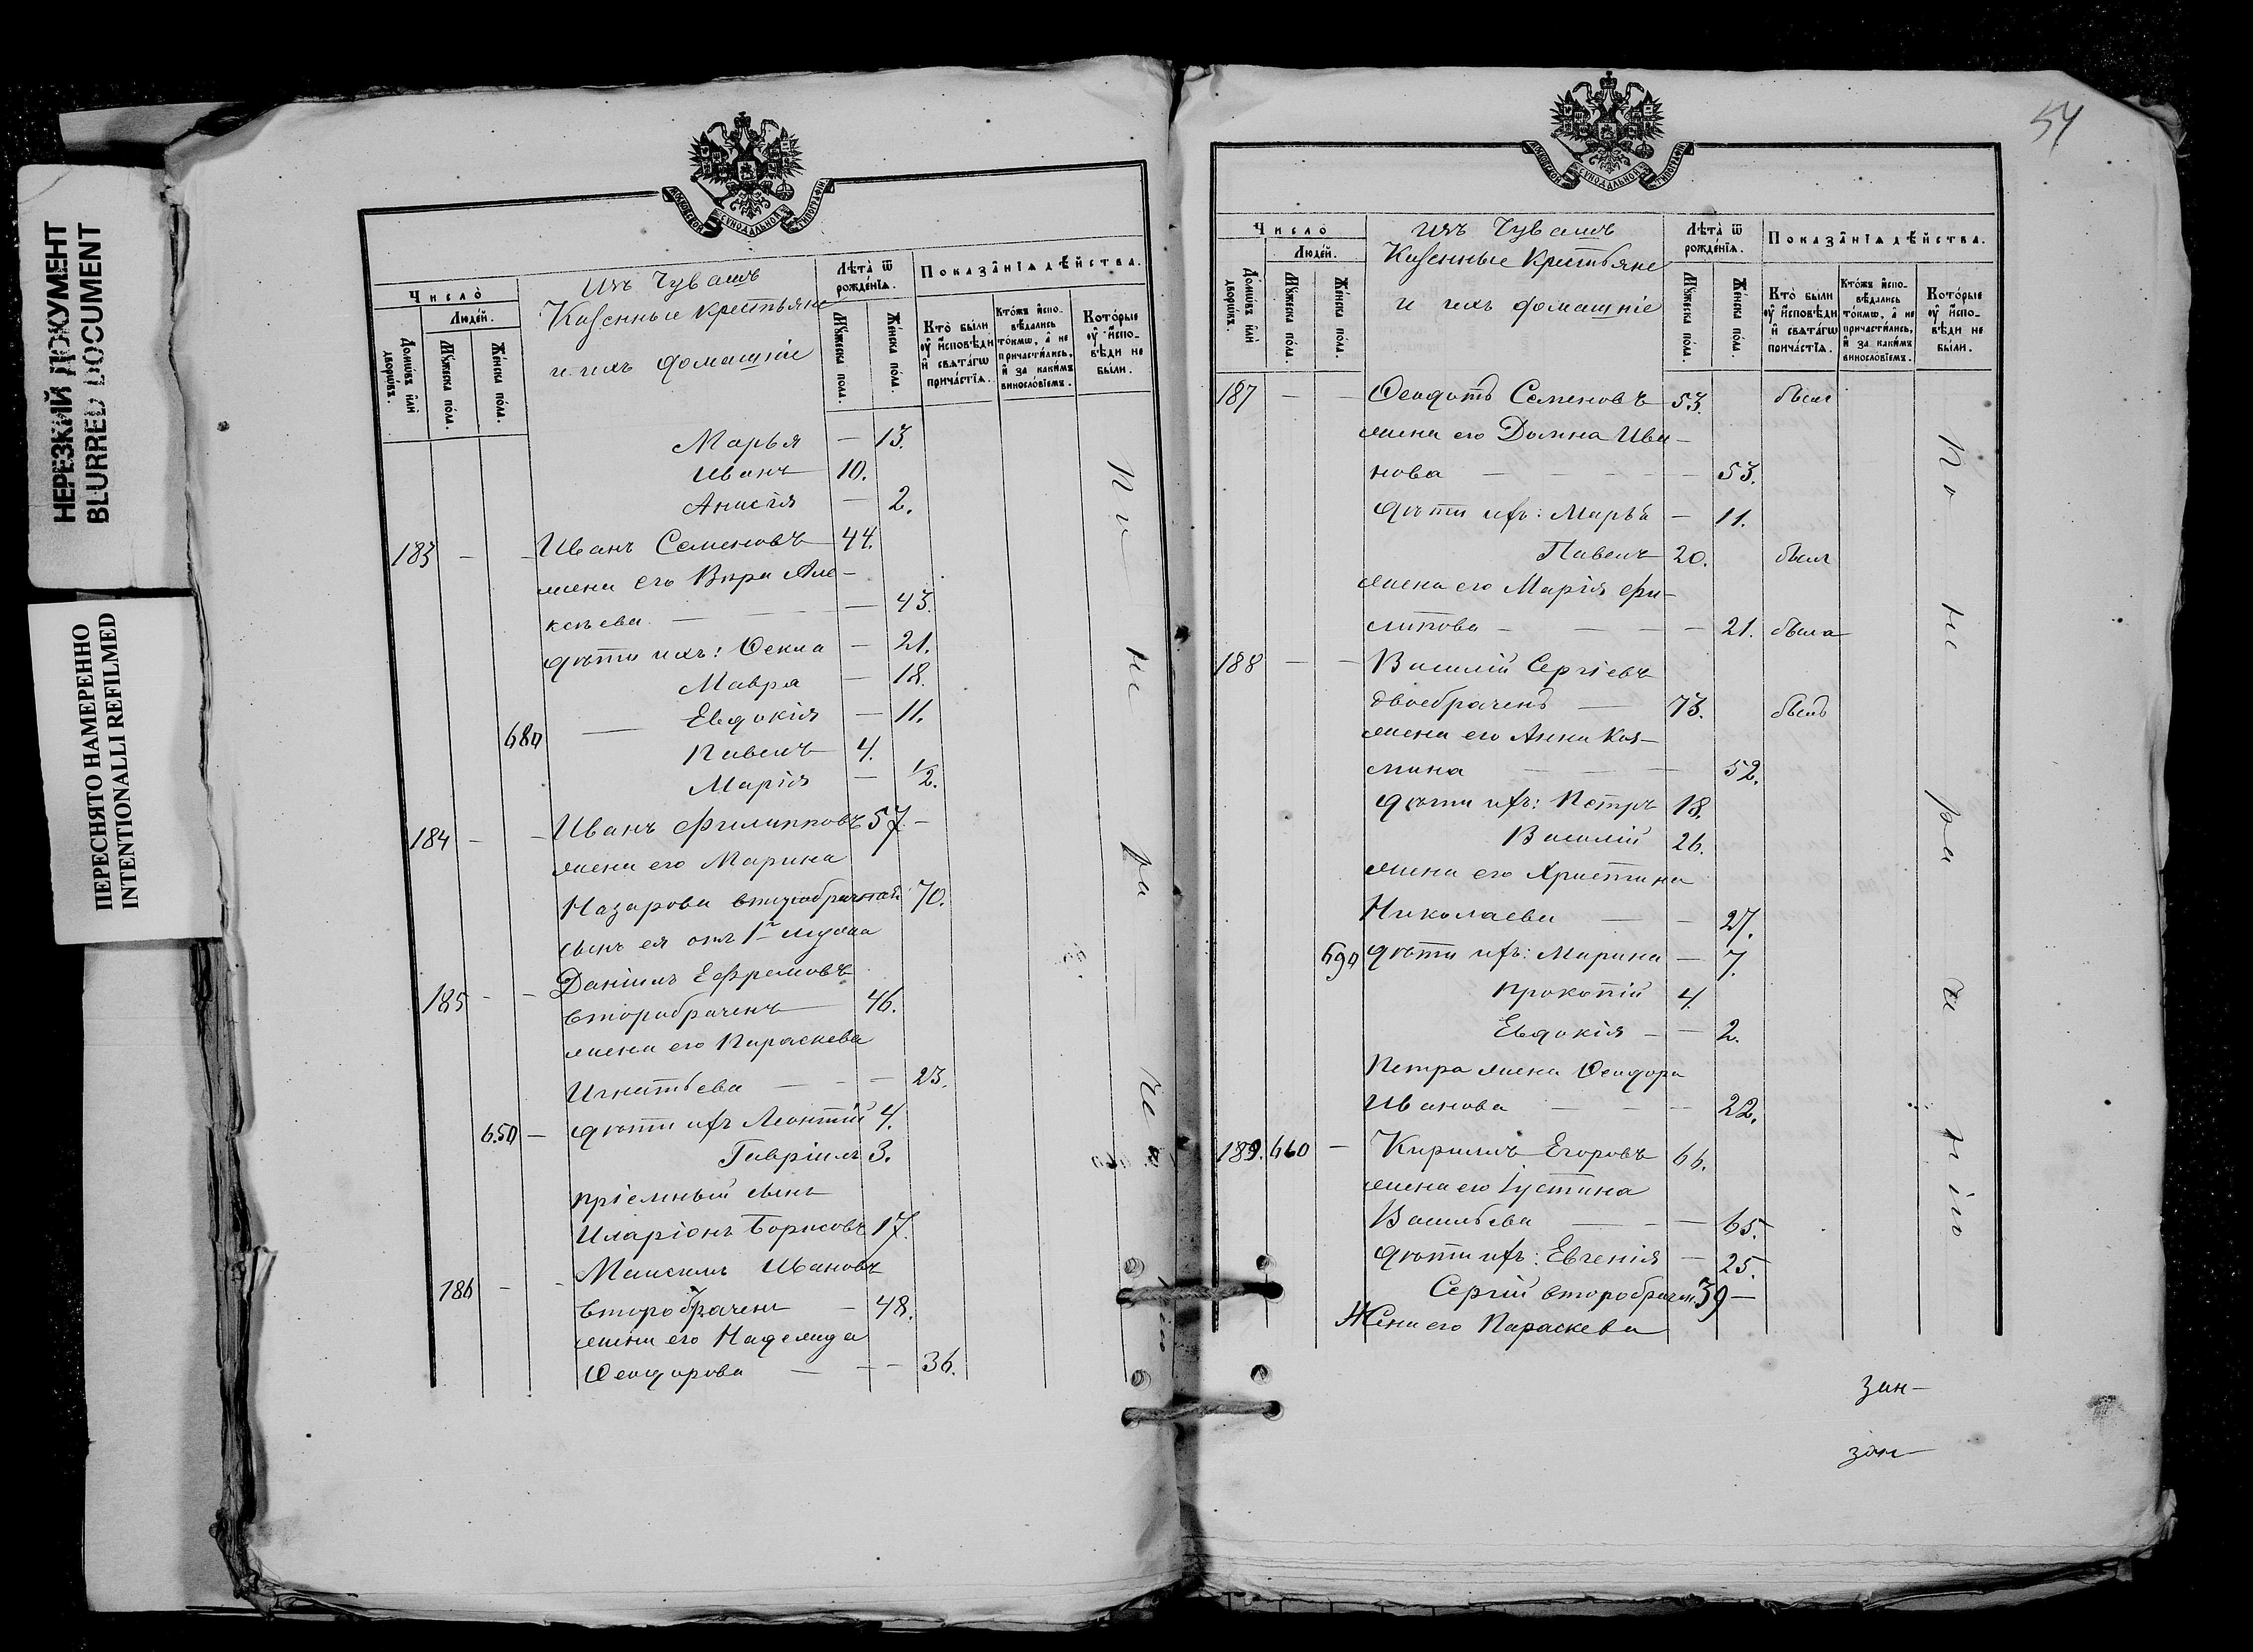 НЕРЕЗКИЙ ДОКУМЕНТ
BLURRED DOCUMENT
ПЕРЕСНЯТО НАМЕРЕННО
INTENTIONALLI REFILMED
МОСКОВСКОЙ СѴНОДАЛЬНОЙ ТИПОГРАФІИ
Число̀
Людей.
Домѡвъ и҆лѝ дворѡвъ.
Мꙋ́жеска по́ла.
Же́нска по́ла.
Изъ Чувашъ
Казенные крестьяне
и ихъ домашніе
Лѣта̀ ѿ рожде́нїѧ.
Мꙋ́жеска по́ла.
Же́нска по́ла.
Показа̑нїѧ дѣ́йства.
Кто̀ бы́ли ᲂу҆ и҆сповѣ́ди и҆ свѧта́гѡ прича́стїѧ.
Кто́жъ и҆спо-вѣ́дались то́кмѡ, а҆ не причасти́лись, и҆ за каки́мъ винослові́емъ.
Кото́рые ᲂу҆ и҆спо-вѣ́ди не бы́ли.
Марья — 13.
Иванъ 10.
Анисія — 2.
183 — — Иванъ Семеновъ 44.
жена его Вѣра Але-
ксѣева — — 43.
дѣти ихъ: Ѳекла — 21.
Мавра — 18.
Евдокія — 11.
680
Павелъ 4.
Марія — 1/2.
184 — — Иванъ Филипповъ 57. —
жена его Марина
Назарова второбрачная 70.
сынъ ея отъ 1го мужа
185 — — Даніилъ Ефремовъ
второбраченъ 46.
жена его Параскева
Игнатьева — — — 23.
650 — дѣти ихъ Леонтій 4.
Гавріилъ 3.
пріемный сынъ
Иларіонъ Борисовъ 17.
186 — — Максимъ Ивановъ
второбраченъ — 48.
жена его Надежда
Ѳеодорова — — — 36.
По не ра че нію
54
МОСКОВСКОЙ СѴНОДАЛЬНОЙ ТИПОГРАФІИ
Число̀
Людей.
Домѡвъ и҆лѝ дворѡвъ.
Мꙋ́жеска по́ла.
Же́нска по́ла.
Изъ Чувашъ
Казенные Крестьяне
и ихъ домашніе
Лѣта̀ ѿ рожде́нїѧ.
Мꙋ́жеска по́ла.
Же́нска по́ла.
Показа̑нїѧ дѣ́йства.
Кто̀ бы́ли ᲂу҆ и҆сповѣ́ди и҆ свѧта́гѡ прича́стїѧ.
Кто́жъ и҆спо-вѣ́дались то́кмѡ, а҆ не причасти́лись, и҆ за каки́мъ винослові́емъ.
Кото́рые ᲂу҆ и҆спо-вѣ́ди не бы́ли.
187 — — Ѳеодотъ Семеновъ 53. былъ
жена его Домна Ива-
нова — — — 53.
дѣти ихъ: Марья — 11.
Павелъ 20. былъ
жена его Марія Фи-
липова — — — 21. была
188 — — Василій Сергіевъ
двоебраченъ — 73. былъ
жена его Анна Коз-
мина — — — 52.
дѣти ихъ: Петръ 18.
Василій 26.
жена его Христина
Николаева — — 27.
690 дѣти ихъ: Марина — 7.
Прокопій 4.
Евдокія — — 2.
Петра жена Ѳеодора
Иванова — — — 22.
189. 660 — Кирилъ Егоровъ 66.
жена его Іустина
Васильева — — — 65.
дѣти ихъ: Евгенія — 25.
Сергій второбрачн 39 —
Жена его Параскева
По не ра че нію